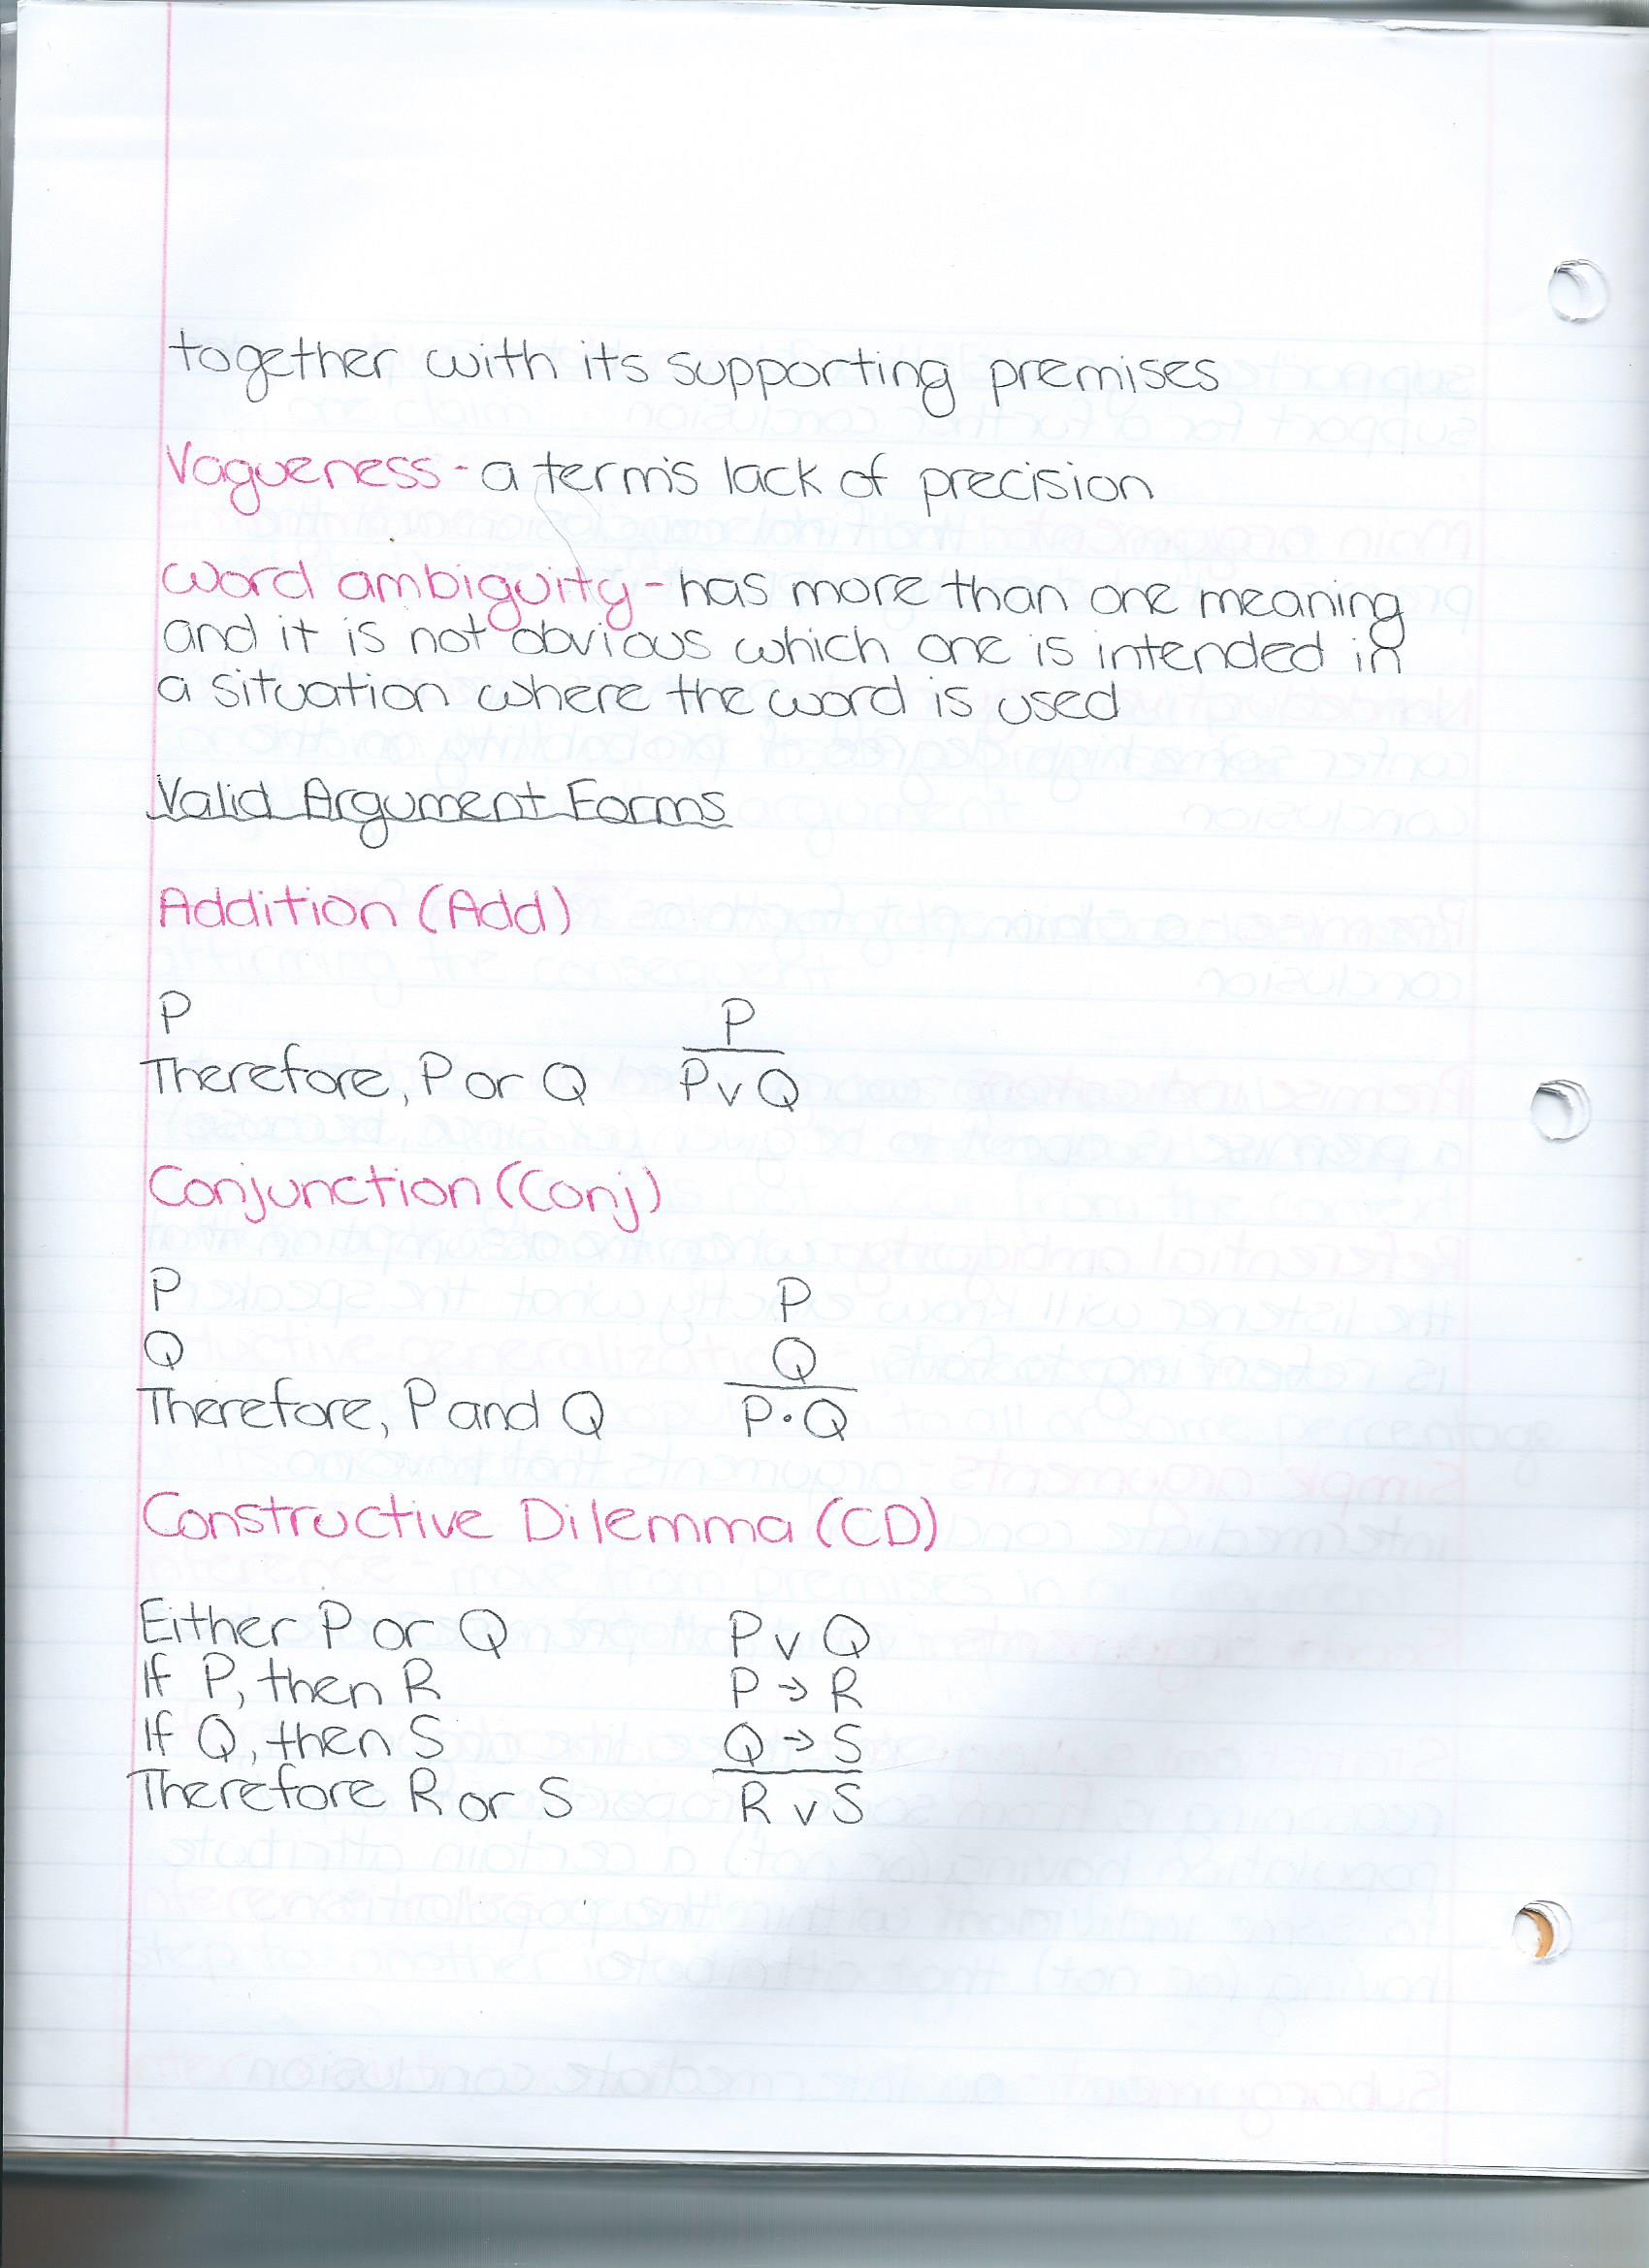 together with its supporting premises
Vagueness - a term's lack of precision
word ambiguity - has more than one meaning
and it is not obvious which one is intended in
a situation where the word is used
Valid Argument Forms
Addition (Add)
P
Therefore, P or Q
P
P v Q
Conjunction (Conj)
P
Q
Therefore, P and Q
P
Q
P • Q
Constructive Dilemma (CD)
Either P or Q
If P, then R
If Q, then S
Therefore R or S
P v Q
P → R
Q → S
R v S